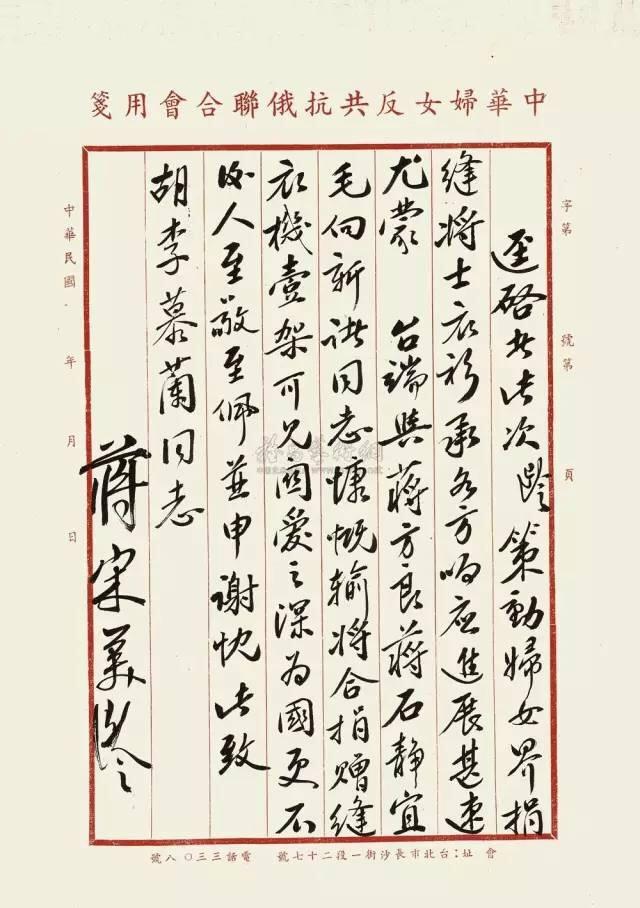 中華婦女反共抗俄聯合會用箋
字第 號第 頁
逕啓者此次齡策動婦女界捐
縫將士衣衫承各方响应進展甚速
尤蒙 台端與蔣方良蔣石靜宜
毛向新諸同志慷慨輸將合捐贈縫
衣機壹架可見關愛之深為國更不
後人至敬至佩並申謝忱此致
胡李慕蘭同志
蔣宋美齡
中華民國 年 月 日
會址：台北市長沙街一段二十七號 電話三三〇八號